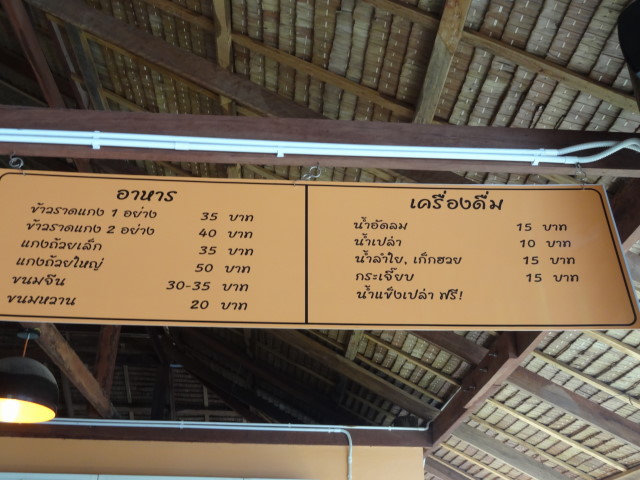 อาหาร
ข้าวราดแกง 1 อย่าง 35 บาท
ข้าวราดแกง 2 อย่าง 40 บาท
แกงถ้วยเล็ก 35 บาท
แกงถ้วยใหญ่ 50 บาท
ขนมจีน 30-35 บาท
ขนมหวาน 20 บาท
เครื่องดื่ม
น้ำอัดลม 15 บาท
น้ำเปล่า 10 บาท
น้ำลำใย, เก็กฮวย 15 บาท
กระเจี๊ยบ 15 บาท
น้ำแข็งเปล่า ฟรี!